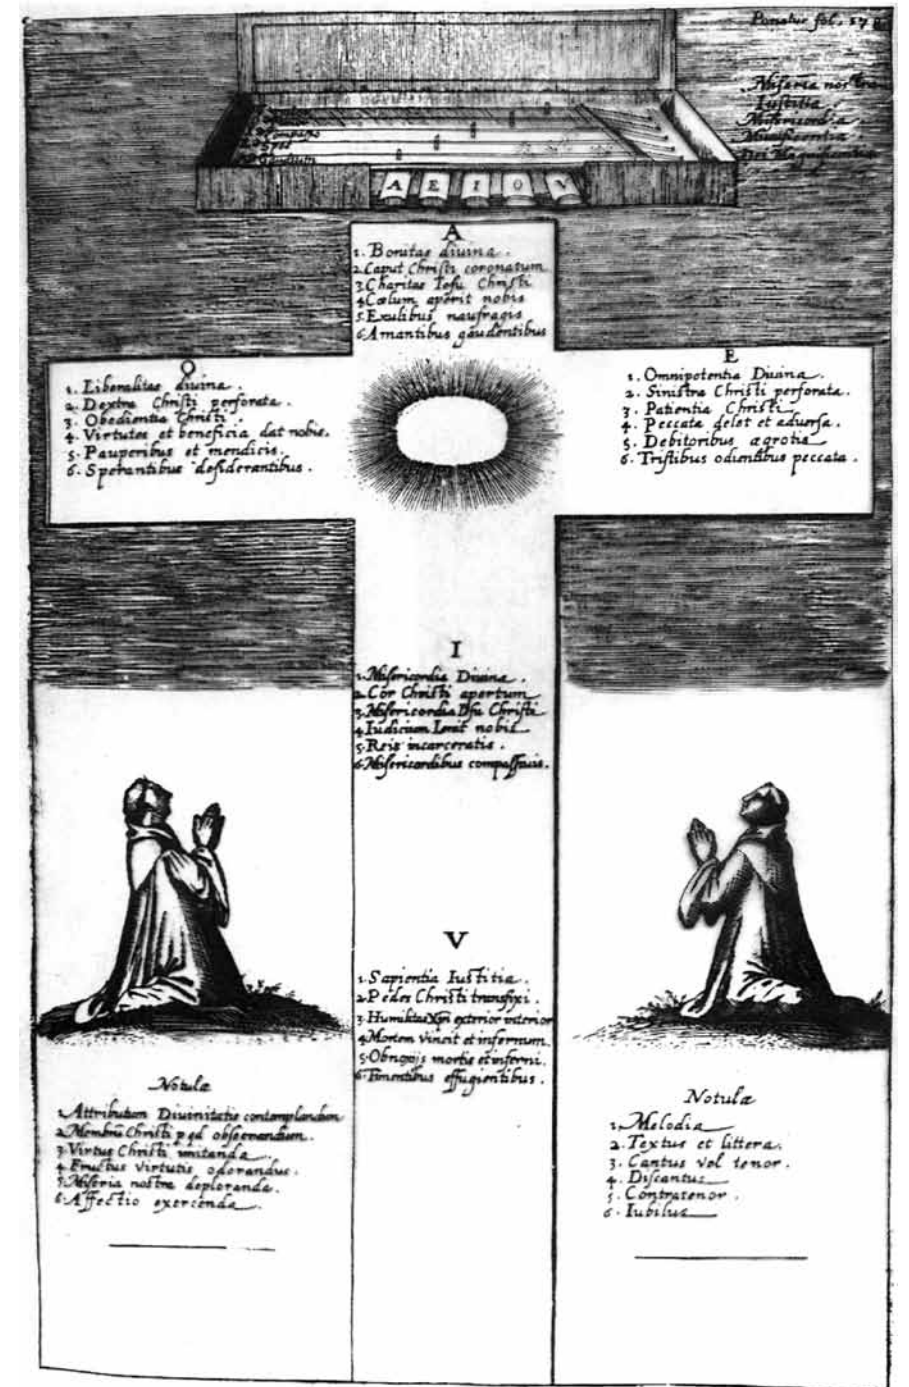 Ponatur fol. 178
Miseria nostra
Iustitia
Misericordia
Munificentia
Dei Magnificentia
Compassio
Spes
Gaudium
A E I O V
A
1. Bonitas diuina.
2. Caput Christi coronatum
3. Charitas Iesu Christi
4. Cœlum aperit nobis
5. Exulibus naufragis
6. Amantibus gaudentibus
O
1. Liberalitas diuina.
2. Dextra Christi perforata.
3. Obedientia Christi.
4. Virtutes et beneficia dat nobis.
5. Pauperibus et mendicis.
6. Sperantibus desiderantibus.
E
1. Omnipotentia Diuina.
2. Sinistra Christi perforata.
3. Patientia Christi
4. Peccata delet et aduersa.
5. Debitoribus ægrotis
6. Tristibus odientibus peccata.
I
1. Misericordia Diuina.
2. Cor Christi apertum
3. Misericordia Iesu Christi
4. Iudicium Lenit nobis
5. Reis incarceratis.
6. Misericordibus compassiuis.
V
1. Sapientia Iustitia.
2. Pedes Christi transfixi.
3. Humilitas Xpi exterior interior
4. Mortem vincit et infernum.
5. Obnoxijs mortis et inferni.
6. Timentibus effugientibus.
Notulæ
1. Attributum Diuinitatis contemplandum
2. Membrū Christi p qd obseruandum.
3. Virtus Christi imitanda.
4. Fructus virtutis odorandus.
5. Miseria nostra deploranda.
6. Affectio exercenda.
Notulæ
1. Melodia
2. Textus et littera.
3. Cantus vel tenor.
4. Discantus
5. Contratenor.
6. Iubilus